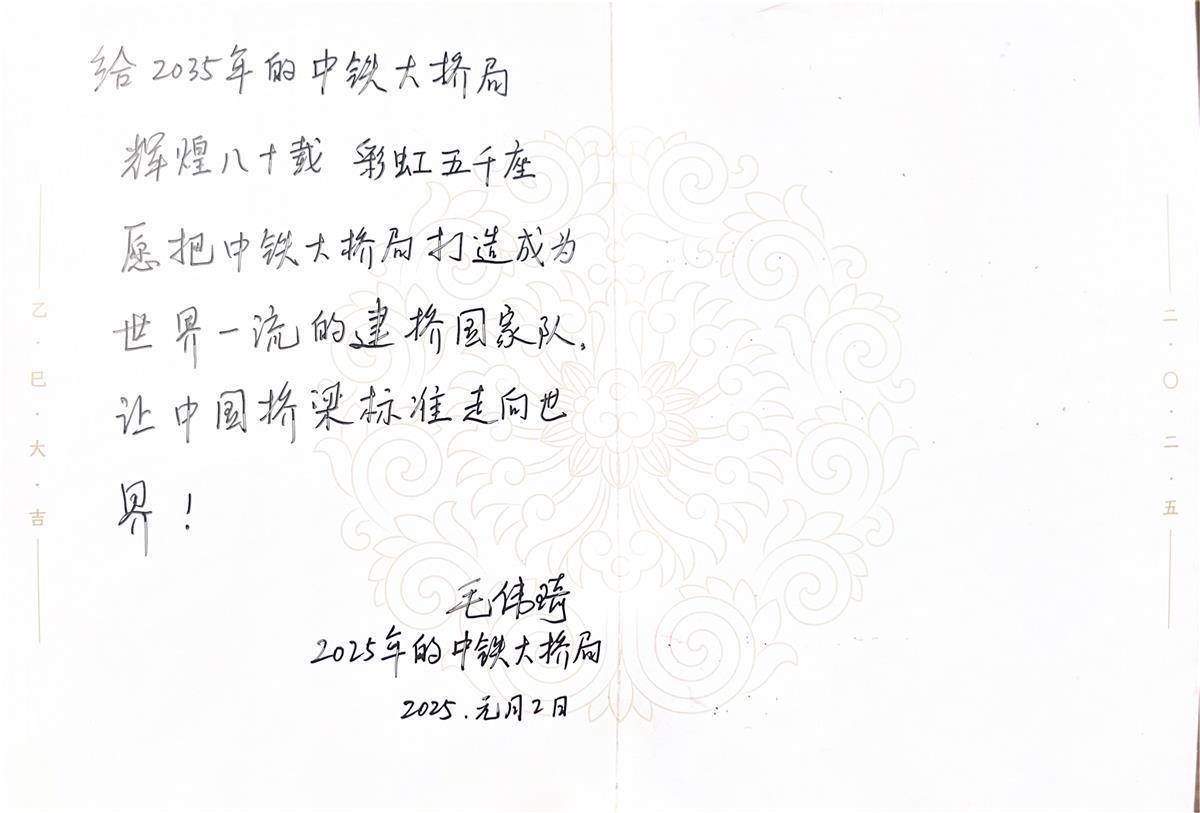 给2035年的中铁大桥局
辉煌八十载 彩虹五千座
愿把中铁大桥局打造成为
世界一流的建桥国家队。
让中国桥梁标准走向世
界！
毛伟琦
2025年的中铁大桥局
2025.元月2日
乙·巳·大·吉
二·〇·二·五